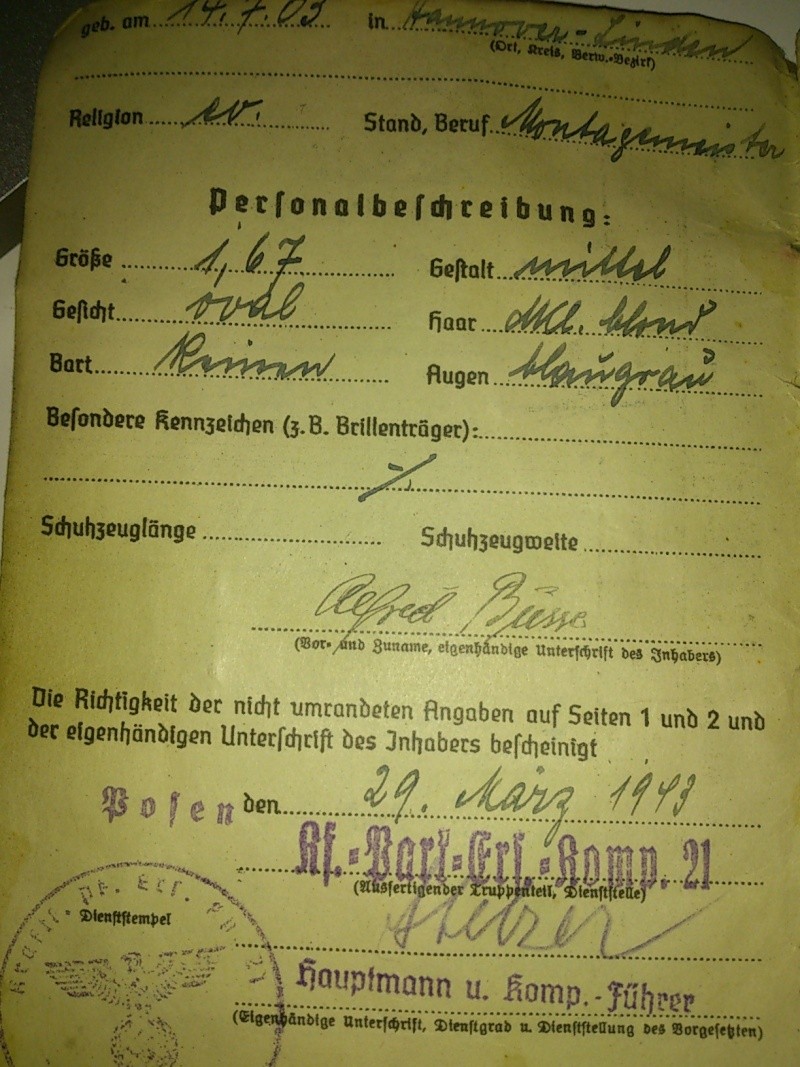 geb. am 14.7.03 in Hannover-Linden
(Ort, Kreis, Verw.-Bezirk)
Religion ev. Stand, Beruf Montagemeister
Personalbeschreibung:
Größe 1,67 Gestalt mittel
Gesicht oval Haar dkl. blond
Bart keinen Augen blaugrau
Besondere Kennzeichen (z.B. Brillenträger):
⁒
Schuhzeuglänge Schuhzeugweite
Alfred Busse
(Vor- und Zuname, eigenhändige Unterschrift des Inhabers)
Die Richtigkeit der nicht umrandeten Angaben auf Seiten 1 und 2 und
der eigenhändigen Unterschrift des Inhabers bescheinigt
Posen den 29. März 1943
Kf.-Park-Ers.-Komp. 21
(Ausfertigender Truppenteil, Dienststelle)
Dienststempel
Hauptmann u. Komp.-Führer
(Eigenhändige Unterschrift, Dienstgrad u. Dienststellung des Vorgesetzten)